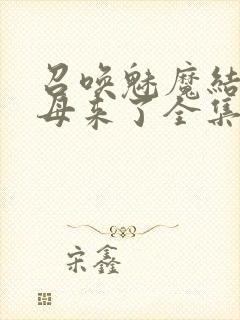 召唤魅魔结
母来了全集
宋鑫